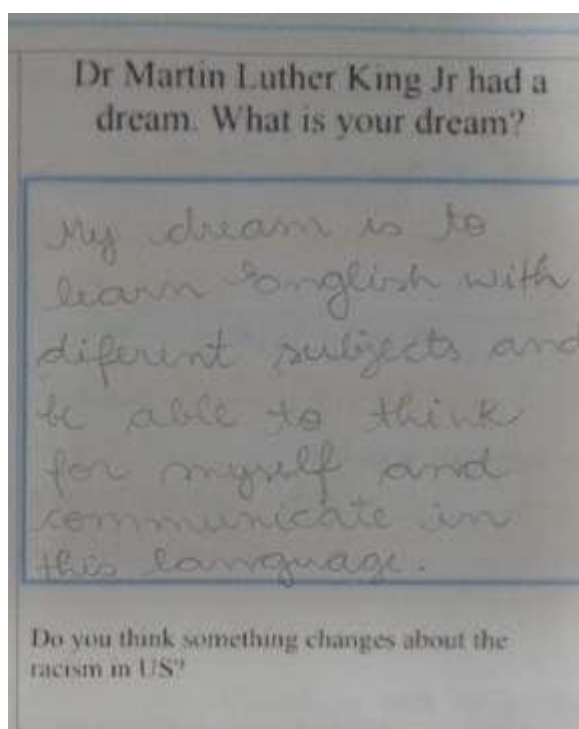 Dr Martin Luther King Jr had a
dream. What is your dream?
My dream is to
learn English with
diferent subjects and
be able to think
for myself and
communicate in
this language.
Do you think something changes about the
racism in US?